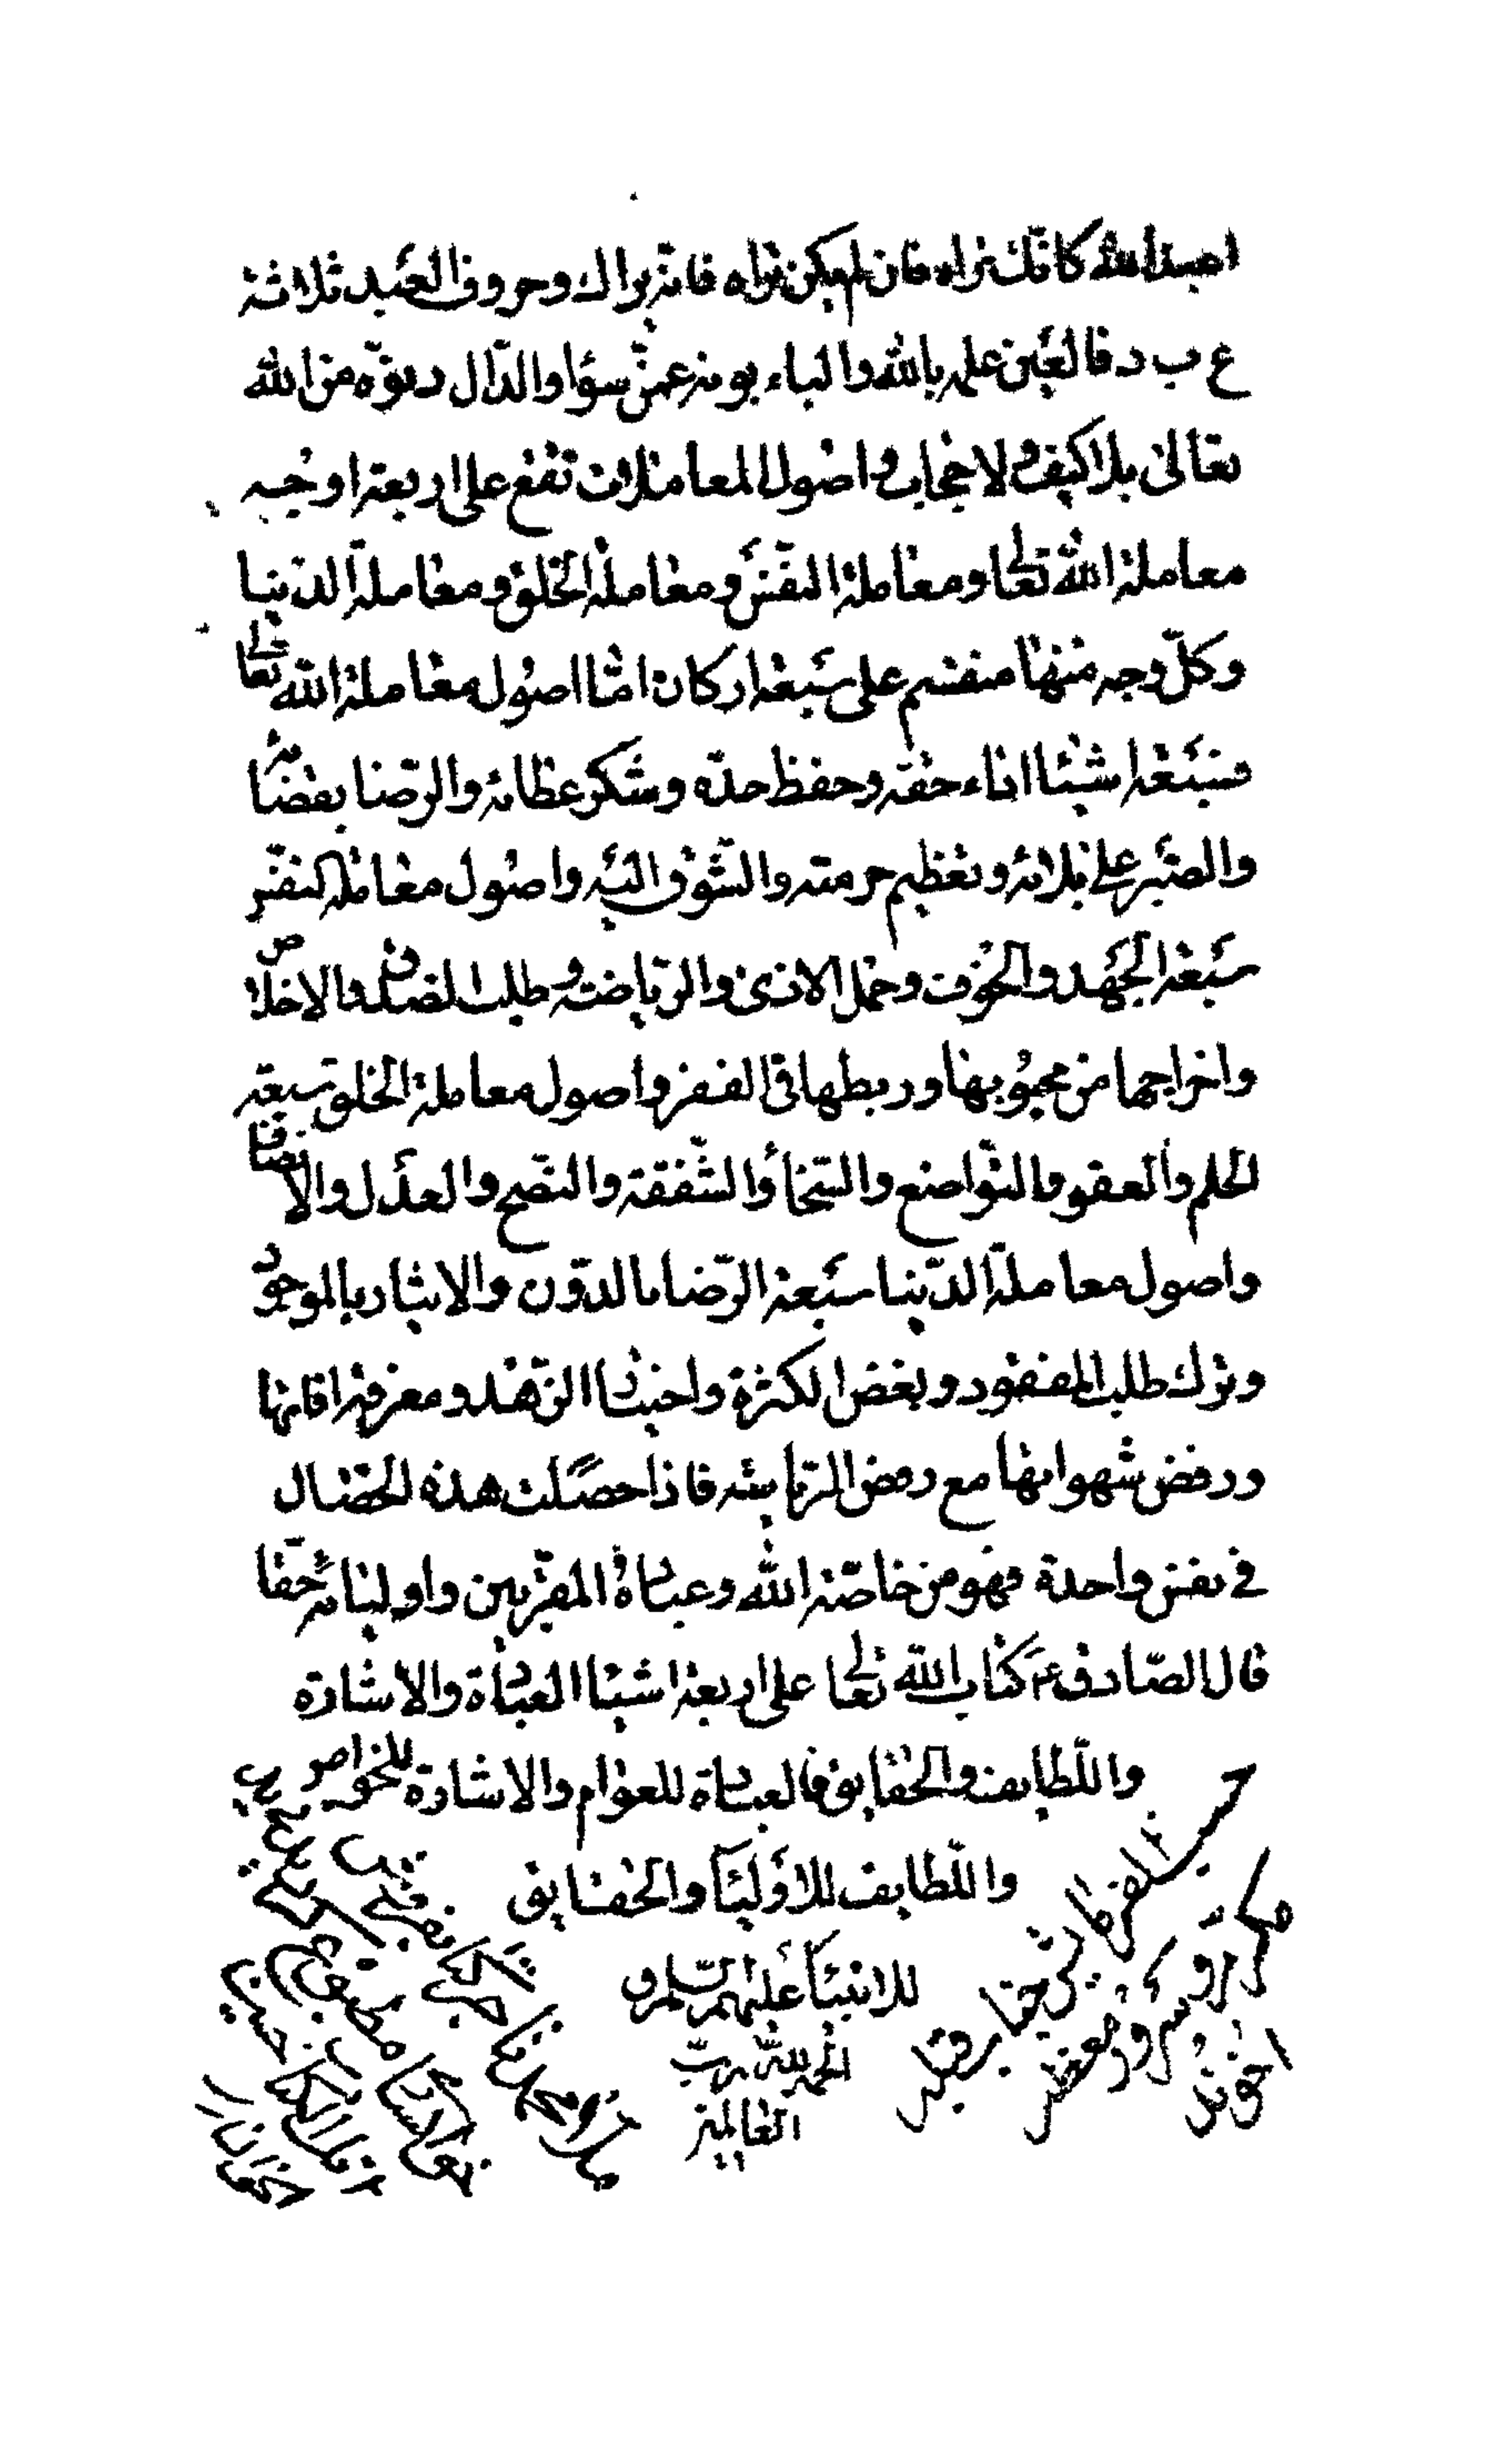 اعبد الله كانك تراه فان لم يكن تراه فانه يراك وحروف العبد ثلاثة
ع ب د فالعين علمه بالله والباء بونه عمن سواه والدال دنوه من الله
تعالى بلا كيف ولا حجاب واصول المعاملات تقع على اربعة اوجه
معاملة الله تعالى ومعاملة النفس ومعاملة الخلق ومعاملة الدنيا
وكل وجه منها منقسم على سبعة اركان اما اصول معاملة الله تعالى
فسبعة اشيئا اداء حقه وحفظ حده وشكر عطائه والرضا بقضائه
والصبر على بلائه وتعظيم حرمته والشوق اليه واصول معاملة النفس
سبعة الجهد والخوف وحمل الاذى والرياضة وطلب الصدق والاخلاص
واخراجها من محبوبها وربطها في الفقر واصول معاملة الخلق سبعة
الحلم والعفو والتواضع والسخأ والشفقة والنصح والعدل والانصاف
واصول معاملة الدنيا سبعة الرضا بالدون والايثار بالموجود
وترك طلب المفقود وبغض الكثرة واختيار الزهد ومعرفة افاتها
ورفض شهواتها مع رفض الرياسة فاذا حصلت هذه الخصال
في نفس واحدة فهو من خاصة الله وعباده المقربين واوليائه حقا
قال الصادق ع كتاب الله تعالى على اربعة اشيئا العبارة والاشارة
واللطايف والحقايق فالعبارة للعوام والاشارة للخواص
واللطايف للاوليئا والحقايق
للانبيئا عليهم السلام و
الحمد لله رب
العالمين